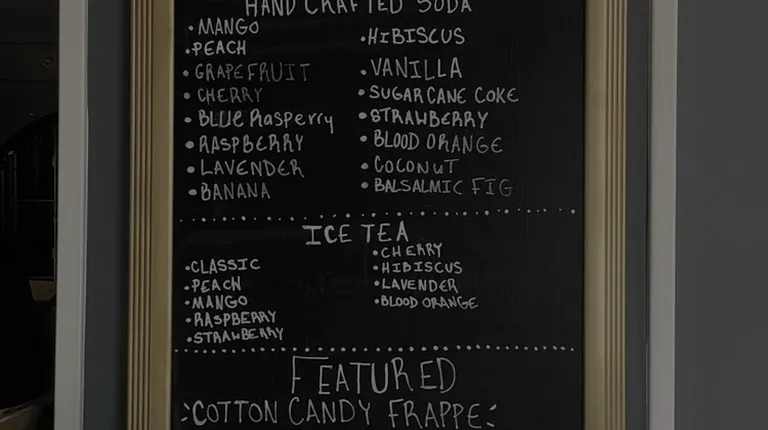 HANDCRAFTED SODA
• MANGO
• PEACH
• GRAPEFRUIT
• CHERRY
• BLUE Rasperry
• RASPBERRY
• LAVENDER
• BANANA
• HIBISCUS
• VANILLA
• SUGAR CANE COKE
• STRAWBERRY
• BLOOD ORANGE
• COCONUT
• BALSALMIC FIG
ICE TEA
• CLASSIC
• PEACH
• MANGO
• RASPBERRY
• STRAWBERRY
• CHERRY
• HIBISCUS
• LAVENDER
• BLOOD ORANGE
FEATURED
COTTON CANDY FRAPPE